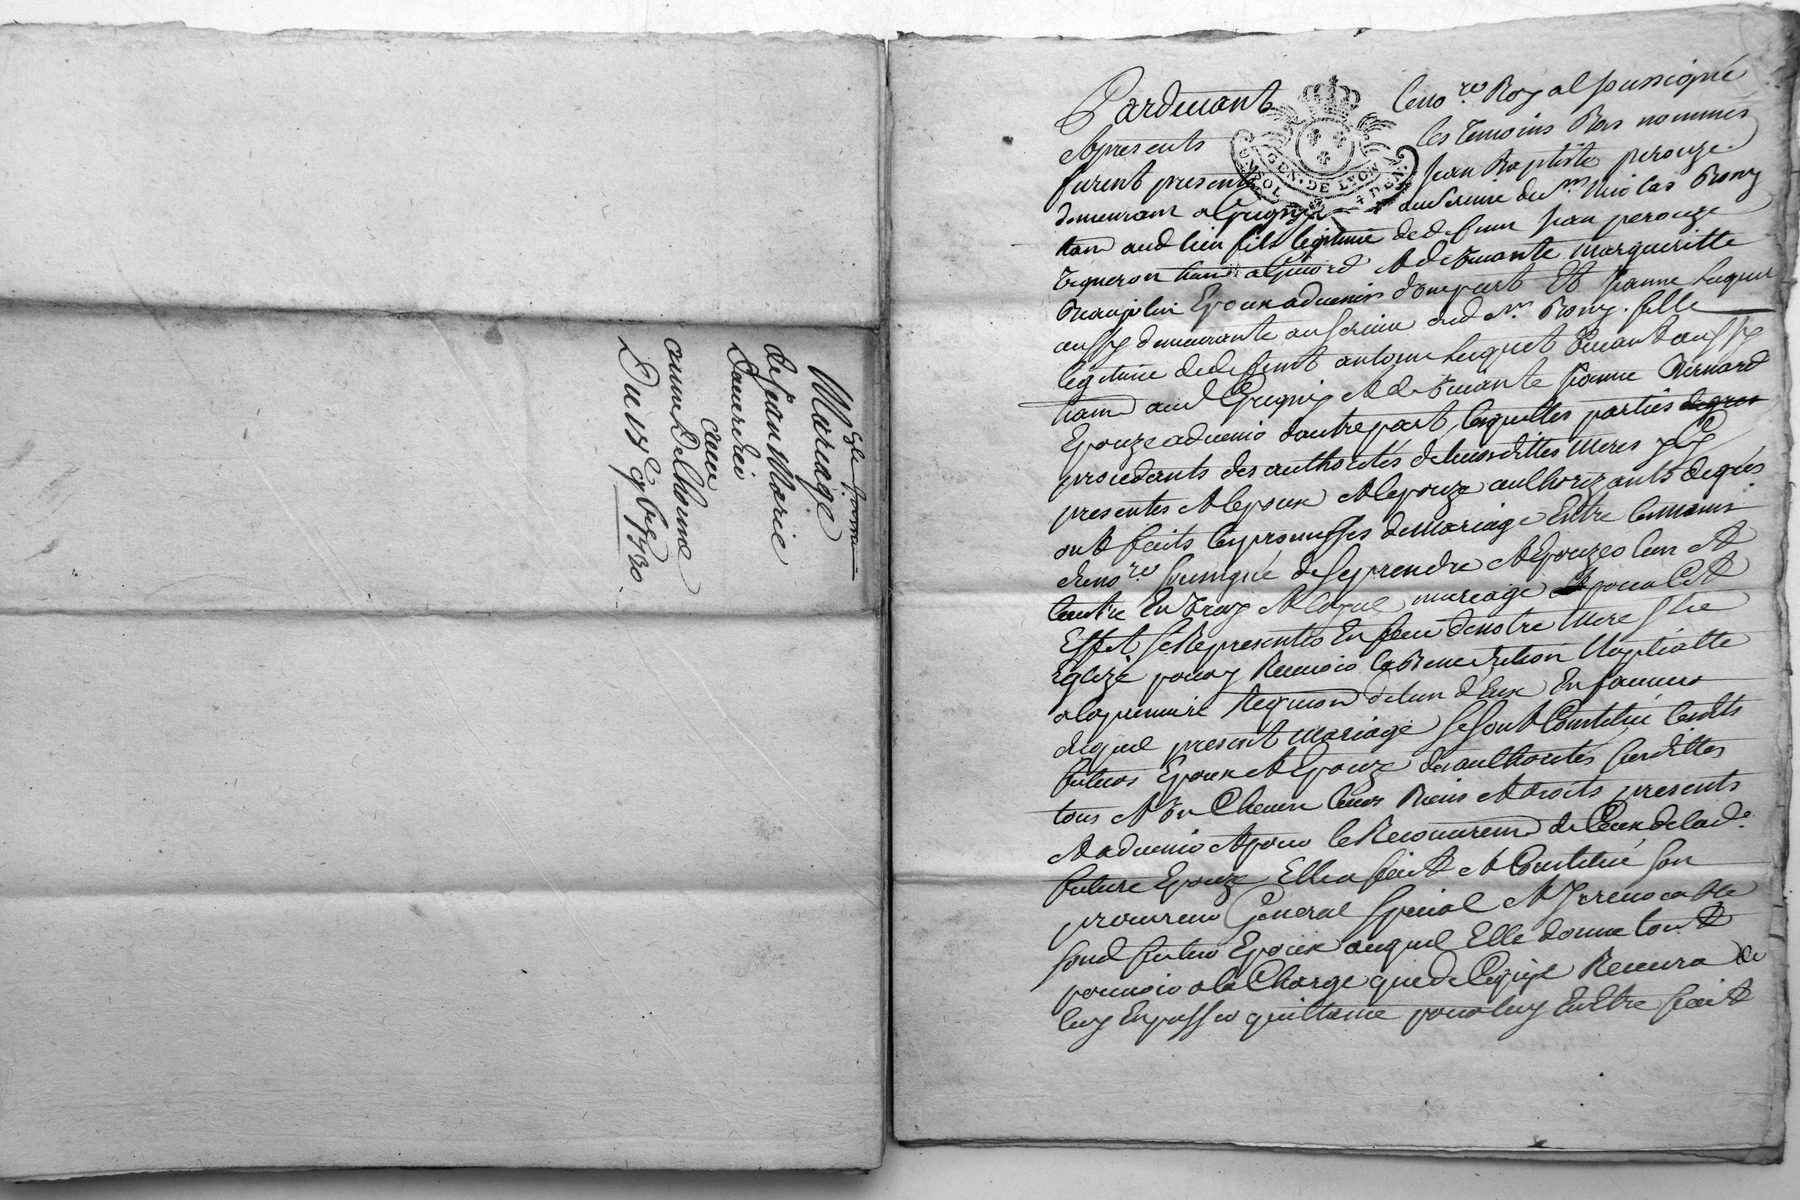 Expedié
Mariage
de Jean Marie
avec
anne Delhorme
Du 18e 9bre 1730
Pardevant le no.re Royal soussigné
Et presents les temoins Bas nommés
furent presents Jean Baptiste perouze
demeurant a Grigny au service du Sr. Nicolas Romy
hant aud lieu fils legitime de defunt Jean perouze
vigneron hant a Givord et de vivante Margueritte
Beaujolin Epoux advenir d'une part Et Jeanne Luquet
aussy demeurante au service dud Sr. Romy. fille
legitime de defunt antoine Luquet vivant aussy
hant aud Grigny et de vivante Jeanne Bernard
Epouze advenir d'autre part, lesquelles parties
procedants des authorités de leursdittes Meres icy
presentes et lepoux et lepouze authorizants de gré
ont faits les promesses de Mariage Entre les mains
du no.re soussigné de se prendre et Epouzer lun et
lautre En vray et loyal mariage Et pour Cet
Effet se Representer En face de notre Mere Ste
Eglize pour y Recevoir la Benediction Nuptialle
a la premiere Requisition de lun d'Eux En faveur
duquel present mariage se sont Constitué lesdits
futurs Epoux et Epouze des authorités susdittes
tous et Un Chacun leurs Biens et droits presents
et advenir et pour le Recouvrement de Ceux de lad.e
future Epouze Elle a fait et Constitué son
procureur General special et Irrevocable
sond futur Epoux auquel Elle donne tout
pouvoir a la Charge que de Ce qu'il Recevra de
luy En passer quittance pour luy En Etre fait
GEN. DE LYON